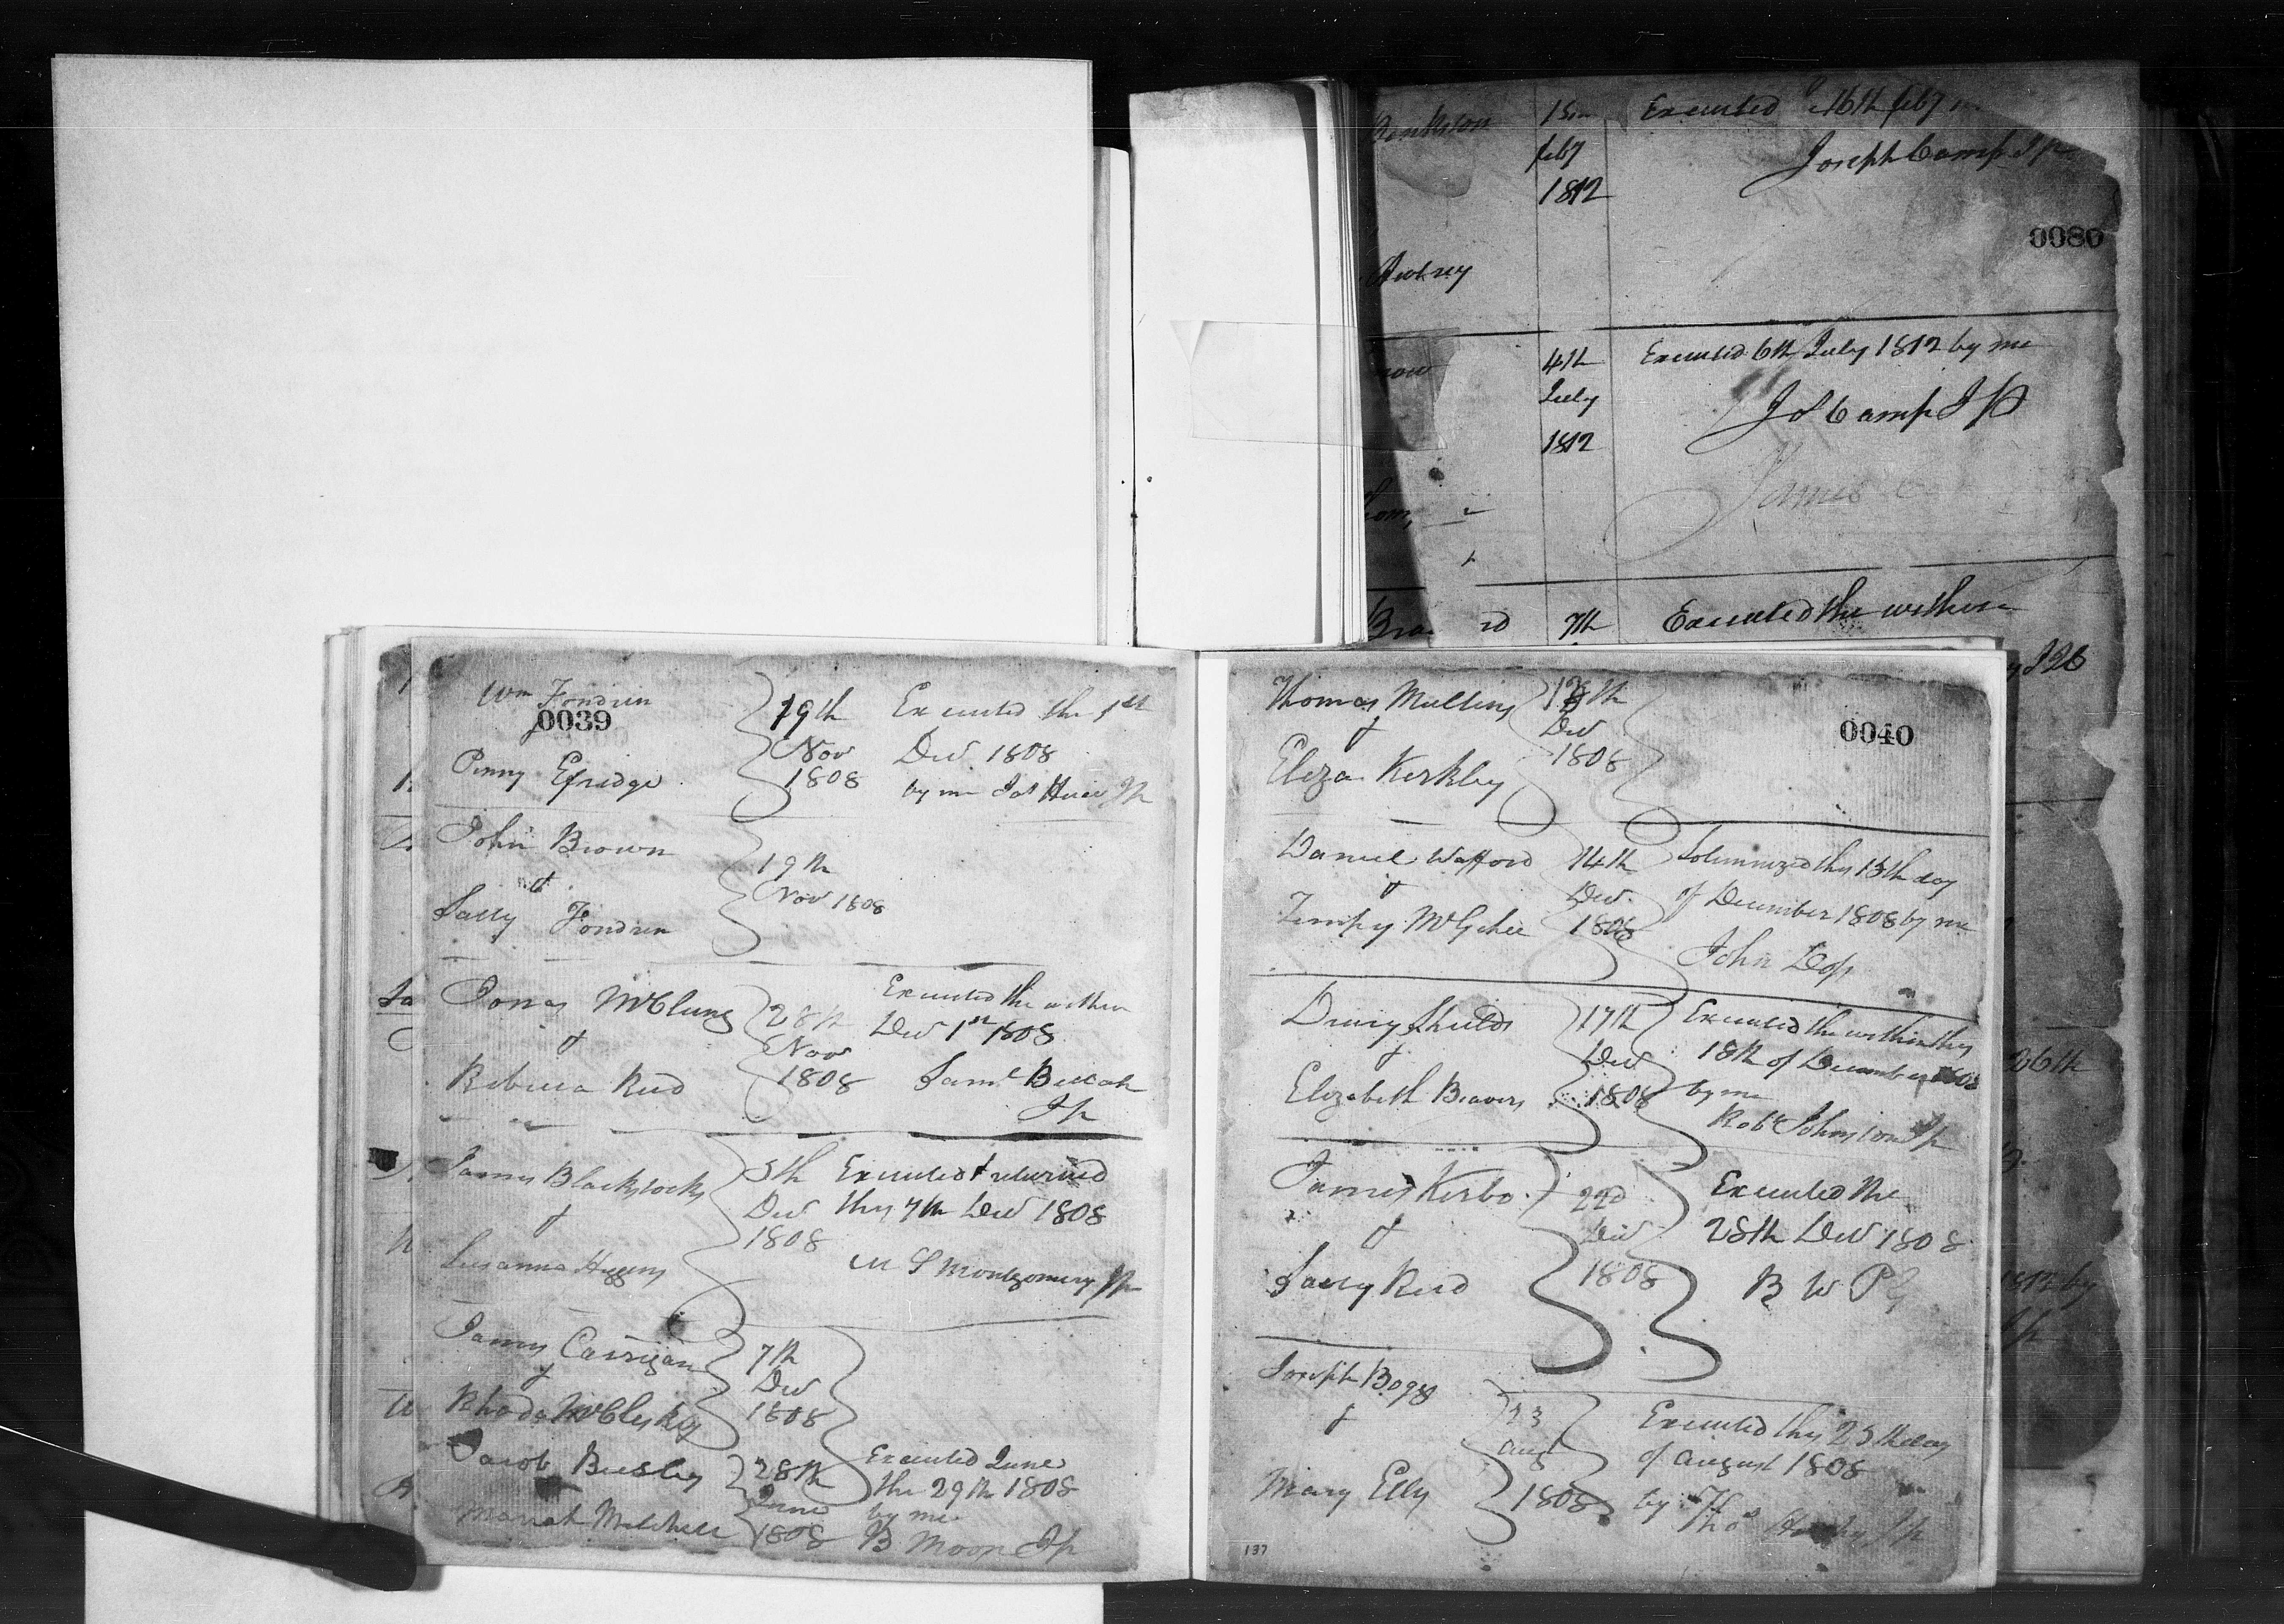 15th Executed 16th feby
feby
1812
Joseph Camp Jp
0080
Awbrey
4th Executed 6th July 1812 by me
July
1812
Jos Camp JP
James
7th Executed the within
Wm Fondren
0039
&
Penny Efridge
19th
Nov
1808
Executed the 1st
Decr 1808
by me Jas Hicks Jp
John Brown
&
Sally Fondren
19th
Nov 1808
Jonas McClung
&
Rebecca Reed
28th
Nov
1808
Executed the within
Decr 1st 1808
Saml
Jp
James Blackstocks
&
Susanna Huggins
5th
Decr
1808
Executed & returned
this 7th Decr 1808
M S Montgomery Jp
James Carrigan
&
Rhoda McCleskey
7th
Decr
1808
Jacob Busby
Mariah Mitchell
28th
June
1808
Executed June
the 29th 1808
by me
B Moon Jp
0040
Thomas Mullins
&
Eliza Kirkley
Decr
1808
Daniel Wafford
&
Tempy McGehee
14th
Decr
1808
Solemnized this 15th day
of December 1808 by me
John
Drury Shields
&
Elizabeth Beavers
17th
Decr
1808
Executed the within this
18th of December 1808
by me
Robt Johnston Jp
James Kirbo
&
Sally Reed
22d
Decr
1808
Executed the
28th Decr 1808
B W
Joseph Boggs
&
Mary Elly
23
Augt
1808
Executed this 25th day
of August 1808
by
Thos Jp
137
26th